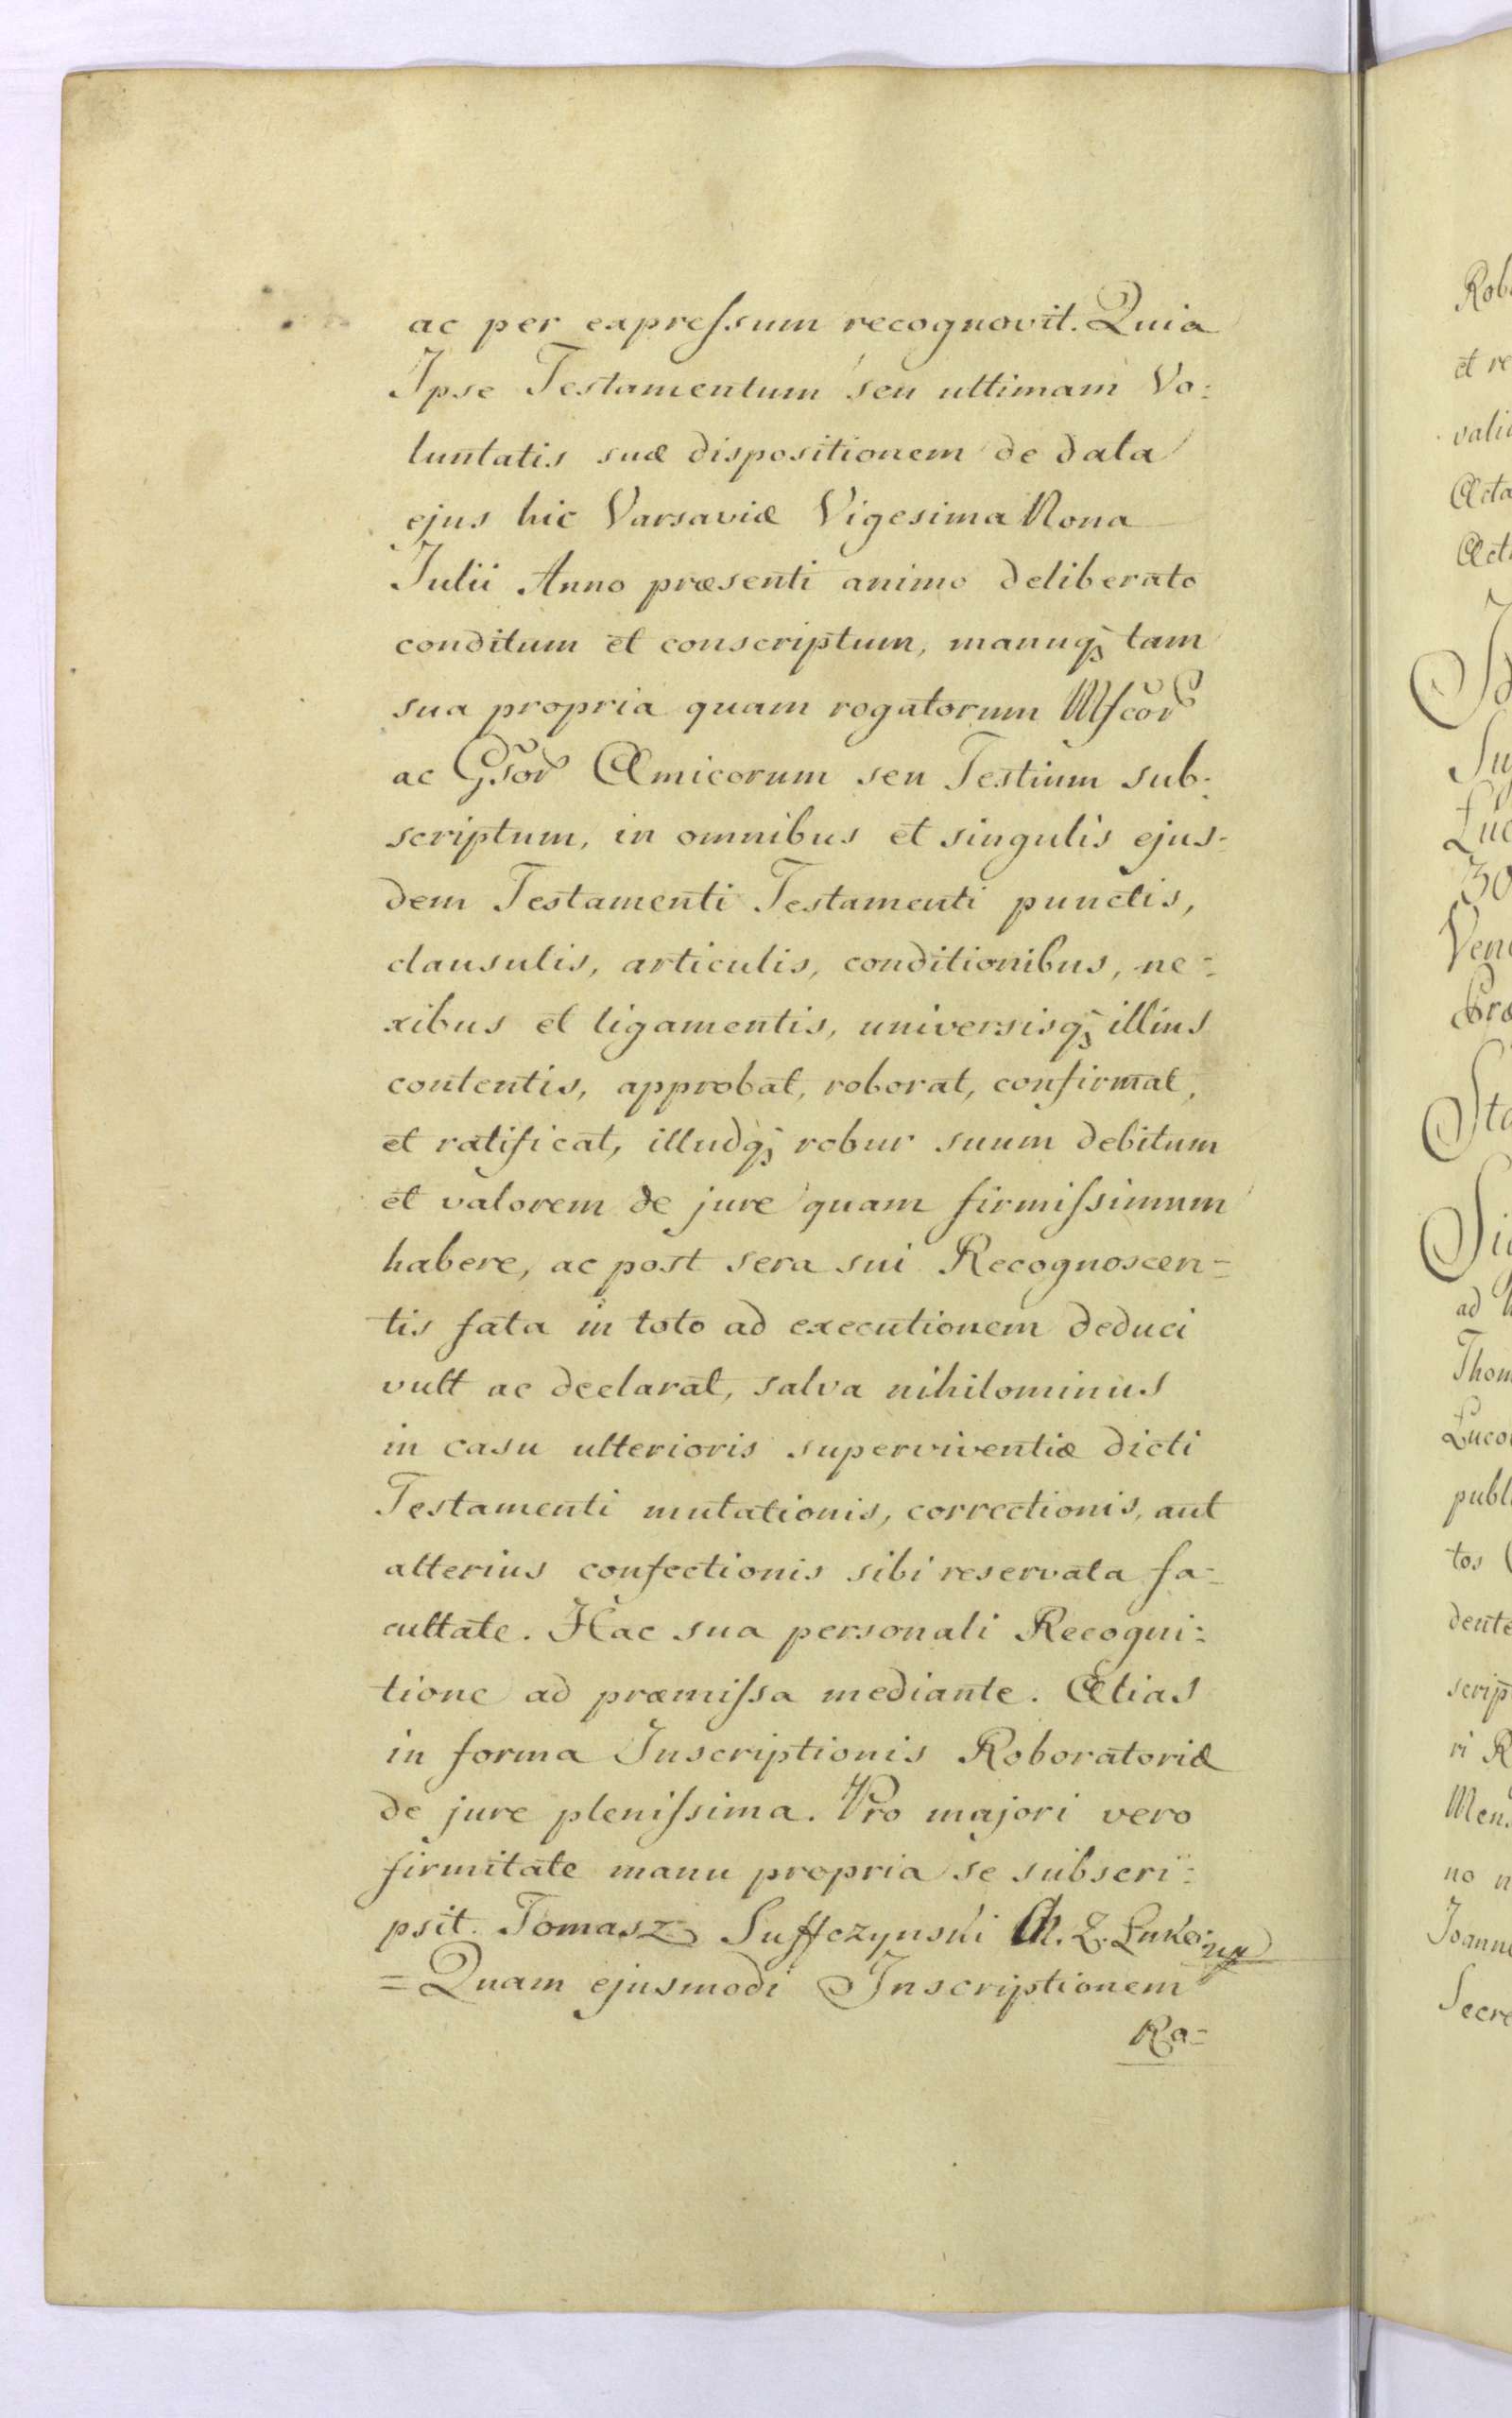 ac per expreſsum recognovit. Quia
Ipse Testamentum seu ultimam Vo:
luntatis suæ dispositionem de data
ejus hic Varsaviæ Vigesima Nona
Julii Anno præsenti animo deliberato
conditum et conscriptum, manuq; tam
sua propria quam rogatorum
ac Gsor Amicorum seu Testium sub:
scriptum, in omnibus et singulis ejus-
dem Testamenti Testamenti punctis,
clausulis, articulis, conditionibus, ne-
xibus et ligamentis, universisq; illius
contentis, approbat, roborat, confirmat,
et ratificat, illudq; robur suum debitum
et valorem de jure quam firmiſsimum
habere, ac post sera sui Recognoscen-
tis fata in toto ad executionem deduci
vult ac declarat, salva nihilominus
in casu ulterioris superviventiæ dicti
Testamenti mutationis, correctionis, aut
alterius confectionis sibi reservata fa-
cultate. Hac sua personali Recogni:
tione ad præmiſsa mediante. Alias
in forma Inscriptionis Roboratoriæ
de jure pleniſsima. Pro majori vero
firmitate manu propria se subscri:
psit. Tomasz Suffczynski
=Quam ejusmodi Inscriptionem
Ra-
Rob
et re
vali
Acta
Act
Su
Luc
30
Ven
Præ
Sta
Sig
ad
Thom
Luco
publ
tos
dente
scrip
ri R
Men
no n
Joanne
Secre